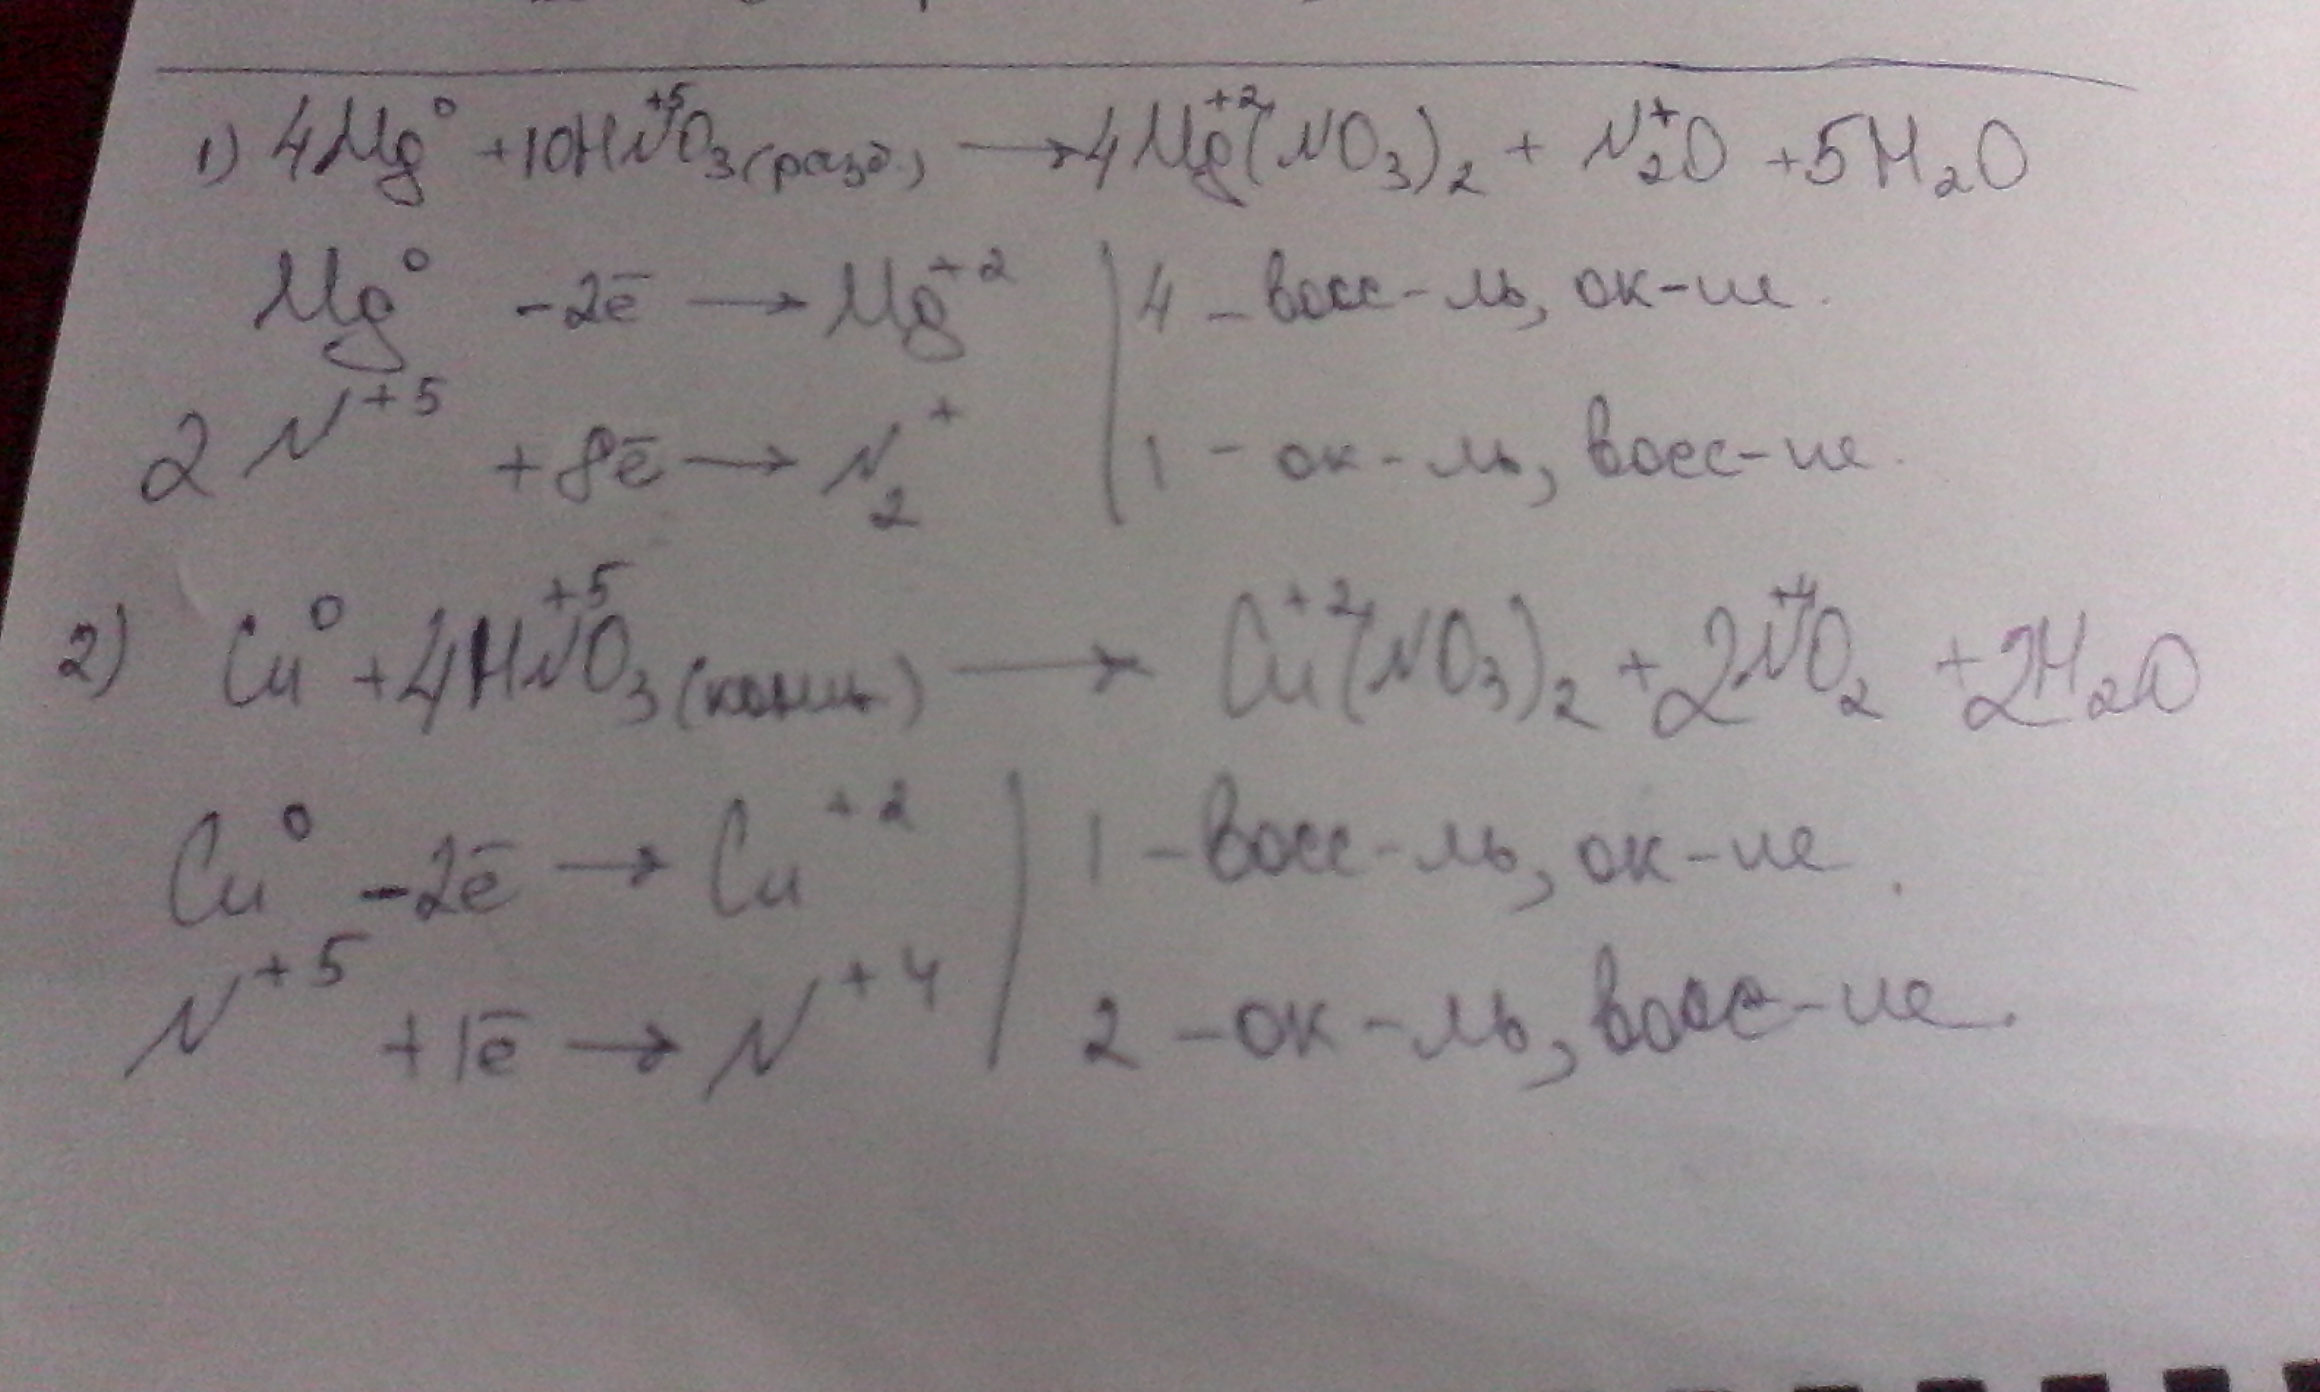 1) 4Mg⁰ + 10HN⁺⁵O₃(разб.) → 4Mg⁺²(NO₃)₂ + N₂⁺O + 5H₂O
Mg⁰ -2ē → Mg⁺² | 4 - восс-ль, ок-ие.
2N⁺⁵ +8ē → N₂⁺ | 1 - ок-ль, восс-ие.
2) Cu⁰ + 4HN⁺⁵O₃(конц.) → Cu⁺²(NO₃)₂ + 2N⁺⁴O₂ + 2H₂O
Cu⁰ -2ē → Cu⁺² | 1 - восс-ль, ок-ие.
N⁺⁵ +1ē → N⁺⁴ | 2 - ок-ль, восс-ие.